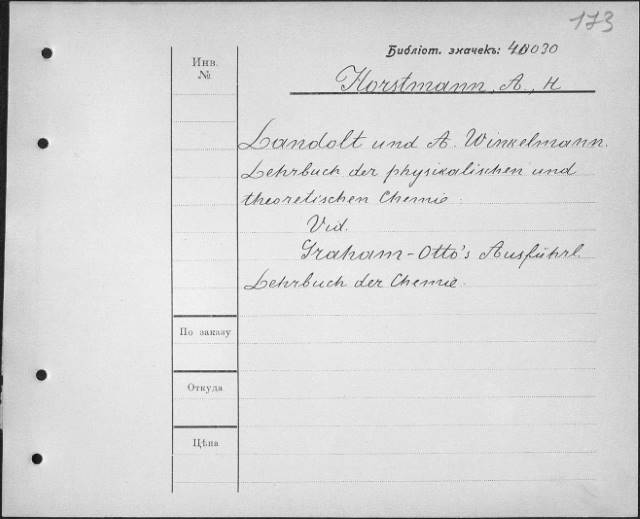 173
Библіот. значекъ: 40030
Инв.
№
Horstmann, A., H
Landolt und A. Winkelmann.
Lehrbuch der physikalischen und
theoretischen Chemie.
Vid.
Graham-Otto's Ausführl.
Lehrbuch der Chemie.
По заказу
Откуда
Цѣна